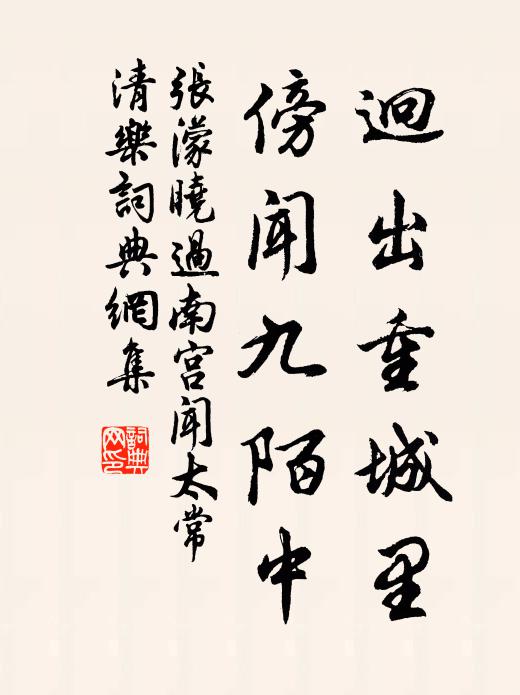 迥出重城里
傍聞九陌中
張濛曉過南宮聞太常
清樂詞典網集
詞典
网印